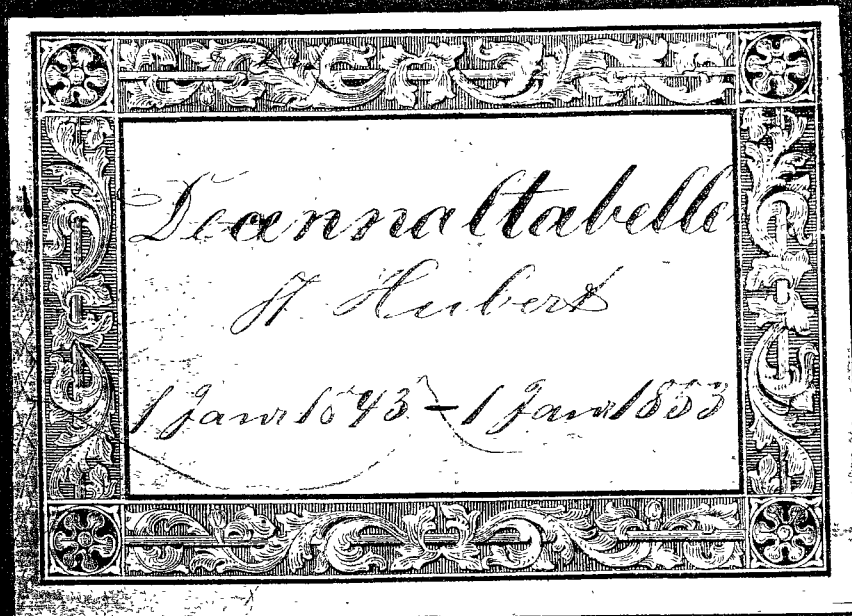 Decennaltabelle
St Hubert
1 Janr 1843 – 1 Janr 1853